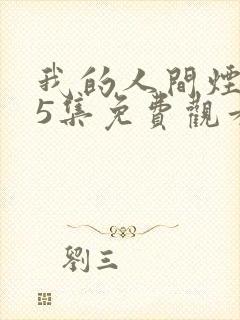 我的人間煙
5集免費觀
劉三